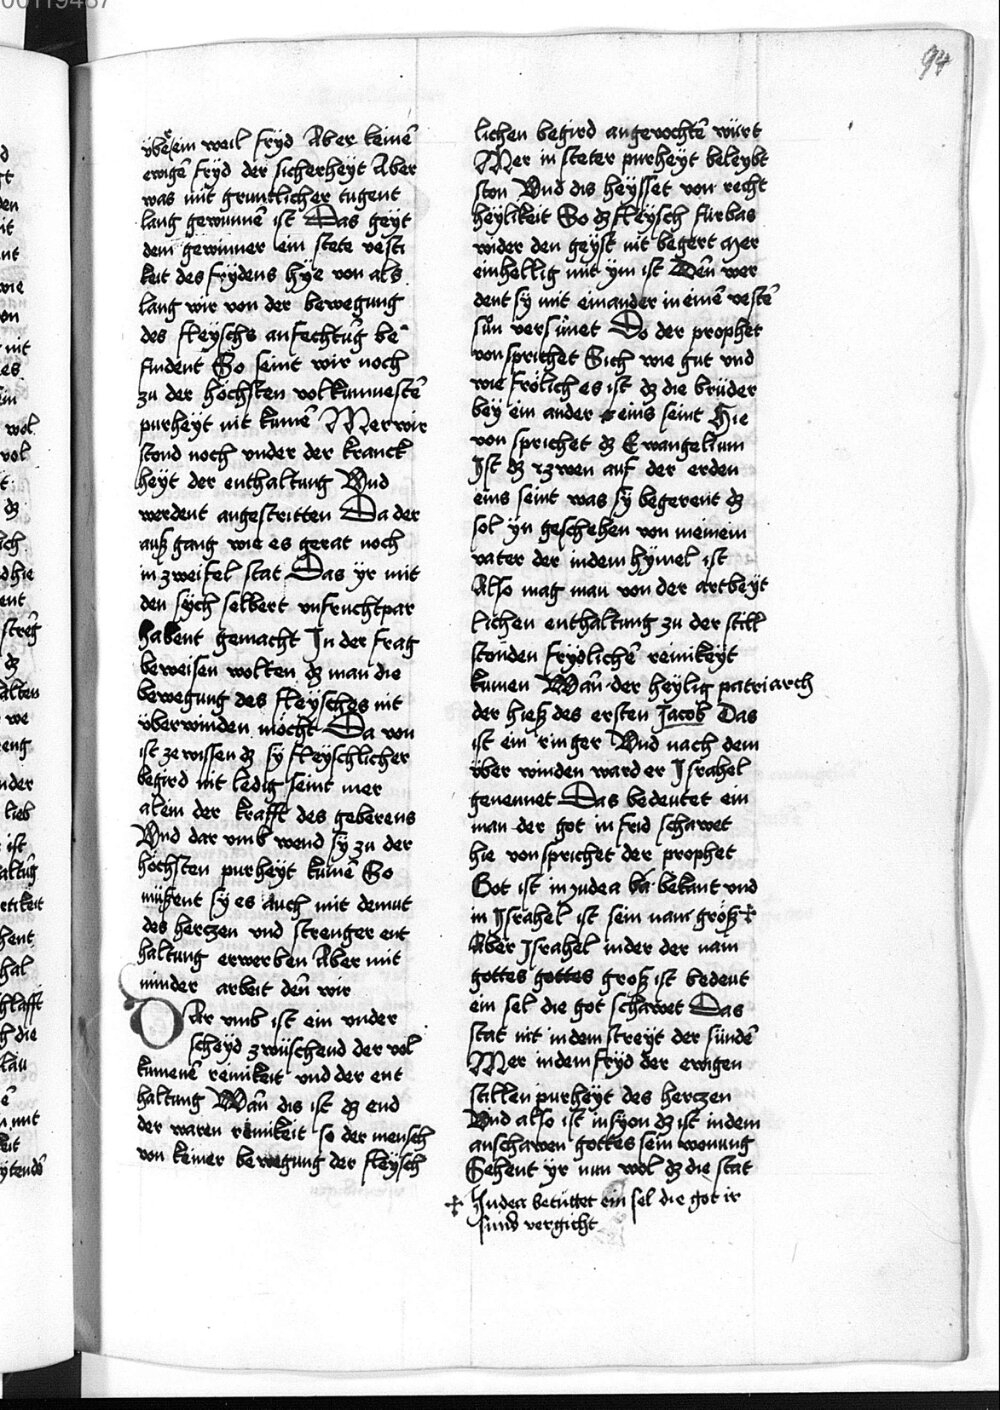 94
übe͛ ein weil fryd Aber keinē
ewigē fryd der sicherheyt Aber
was mit gruntlicher tugent
lang gewunnē ist Das geyt
dem gewinner ein stete vesti
keit des frydens hye von als
lang wir von der bewegung
des fleyschs anfechtūg be
findent So seint wir noch
zu der höchsten volkumnestē
purheyt nit kumē Mer wir
stond noch vnder der kranck
heyt der enthaltung Vnd
werdent angestritten Da der
auß gang wie es gerat noch
in zweifel stat Das yr mit
den sych selbert vnfruchtpar
habent gemacht In der frag
beweisen wolten dz man die
bewegung des fleysches nit
überwinden möcht Da von
ist ze wissen dz sy fleyschlicher
begird nit ledig seint mer
alein der krafft des geberens
Vnd dar vmb wend sy zu der
höchsten purheyt kumē So
müßent sy es auch mit demut
des herczen vnd strenger ent
haltung erwerben Aber mit
minder arbeit deñ wir
DAr vmb ist ein vnder
scheyd zwüschend der vol
kumenē reinikeit vnd der ent
haltung Wañ dis ist dz end
der waren reinikeit so der mensch
von keiner bewegung der fleysch
lichen begird angevochtē würt
Mer in steter purheyt beleybt
ston Vnd dis heysset von recht
heylikeit So dz fleysch fürbas
wider den geyst nit begert mer
einhellig mit ym ist Deñ wer
dent sy mit einander in einē vestē
sůn versünet Do der prophet
von sprichet Sich wie gut vnd
wie frölich es ist dz die brüder
bey ein ander eins seint Hie
von sprichet dz Ewangelium
Ist dz zwen auf der erden
eins seint was sy begerent dz
sol yn geschehen von meinem
vater der in dem hymel ist
Also mag man von der artbeyt
lichen enthaltung zu der still
stonden frydlichē reinikeyt
kumen Wañ der heylig patriarch
der hieß des ersten Jacob Das
ist ein ringer Vnd nach dem
über winden ward er Israhel
genennet Das bedeutet ein
man der got in frid schawet
hie von sprichet der prophet
Got ist in Judea bekant vnd
in Israhel ist sein nam größ ✝
Aber Israhel in der der nam
gottes gottes groß ist bedeut
ein sel die got schawet Das
stat nit in dem streyt der sündē
Mer in dem fryd der ewigen
stillen purheyt des herczen
Vnd also ist in syon dz ist in dem
anschawen gottes sein wonung
Sehent yr nun wol dz die stat
✝ Judea betüttet ein sel die got ir
sünd vergicht